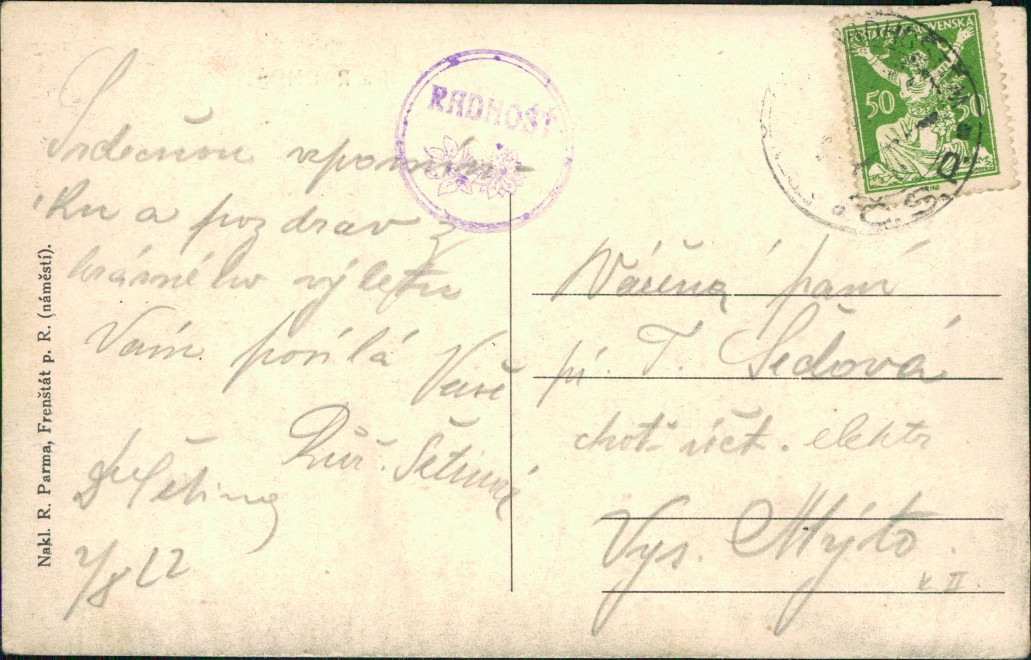 RADHOŠŤ
POŠTA ČESKOSLOVENSKÁ
50 50
Č.S.P.
Srdečnou vzpomín-
ku a pozdrav z
krásného výletu
Vám posílá
Vaše
Růž. Šetinová
Šetina
7/8 22
Vážená paní
pí. T. Šedová
choť účet. elektr
Vys. Mýto.
č. II.
Nakl. R. Parma, Frenštát p. R. (náměstí).